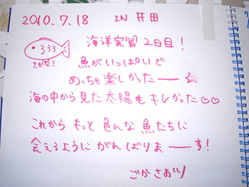 2010.7.18 IN 井田
3:33
さかな!
海洋実習2日目!
魚がいっぱいで
めっちゃ楽しかったーー☆
海の中から見た太陽もキレかった♡♡
これから もっと 色んな魚たちに
会えるように がんばりまーす!